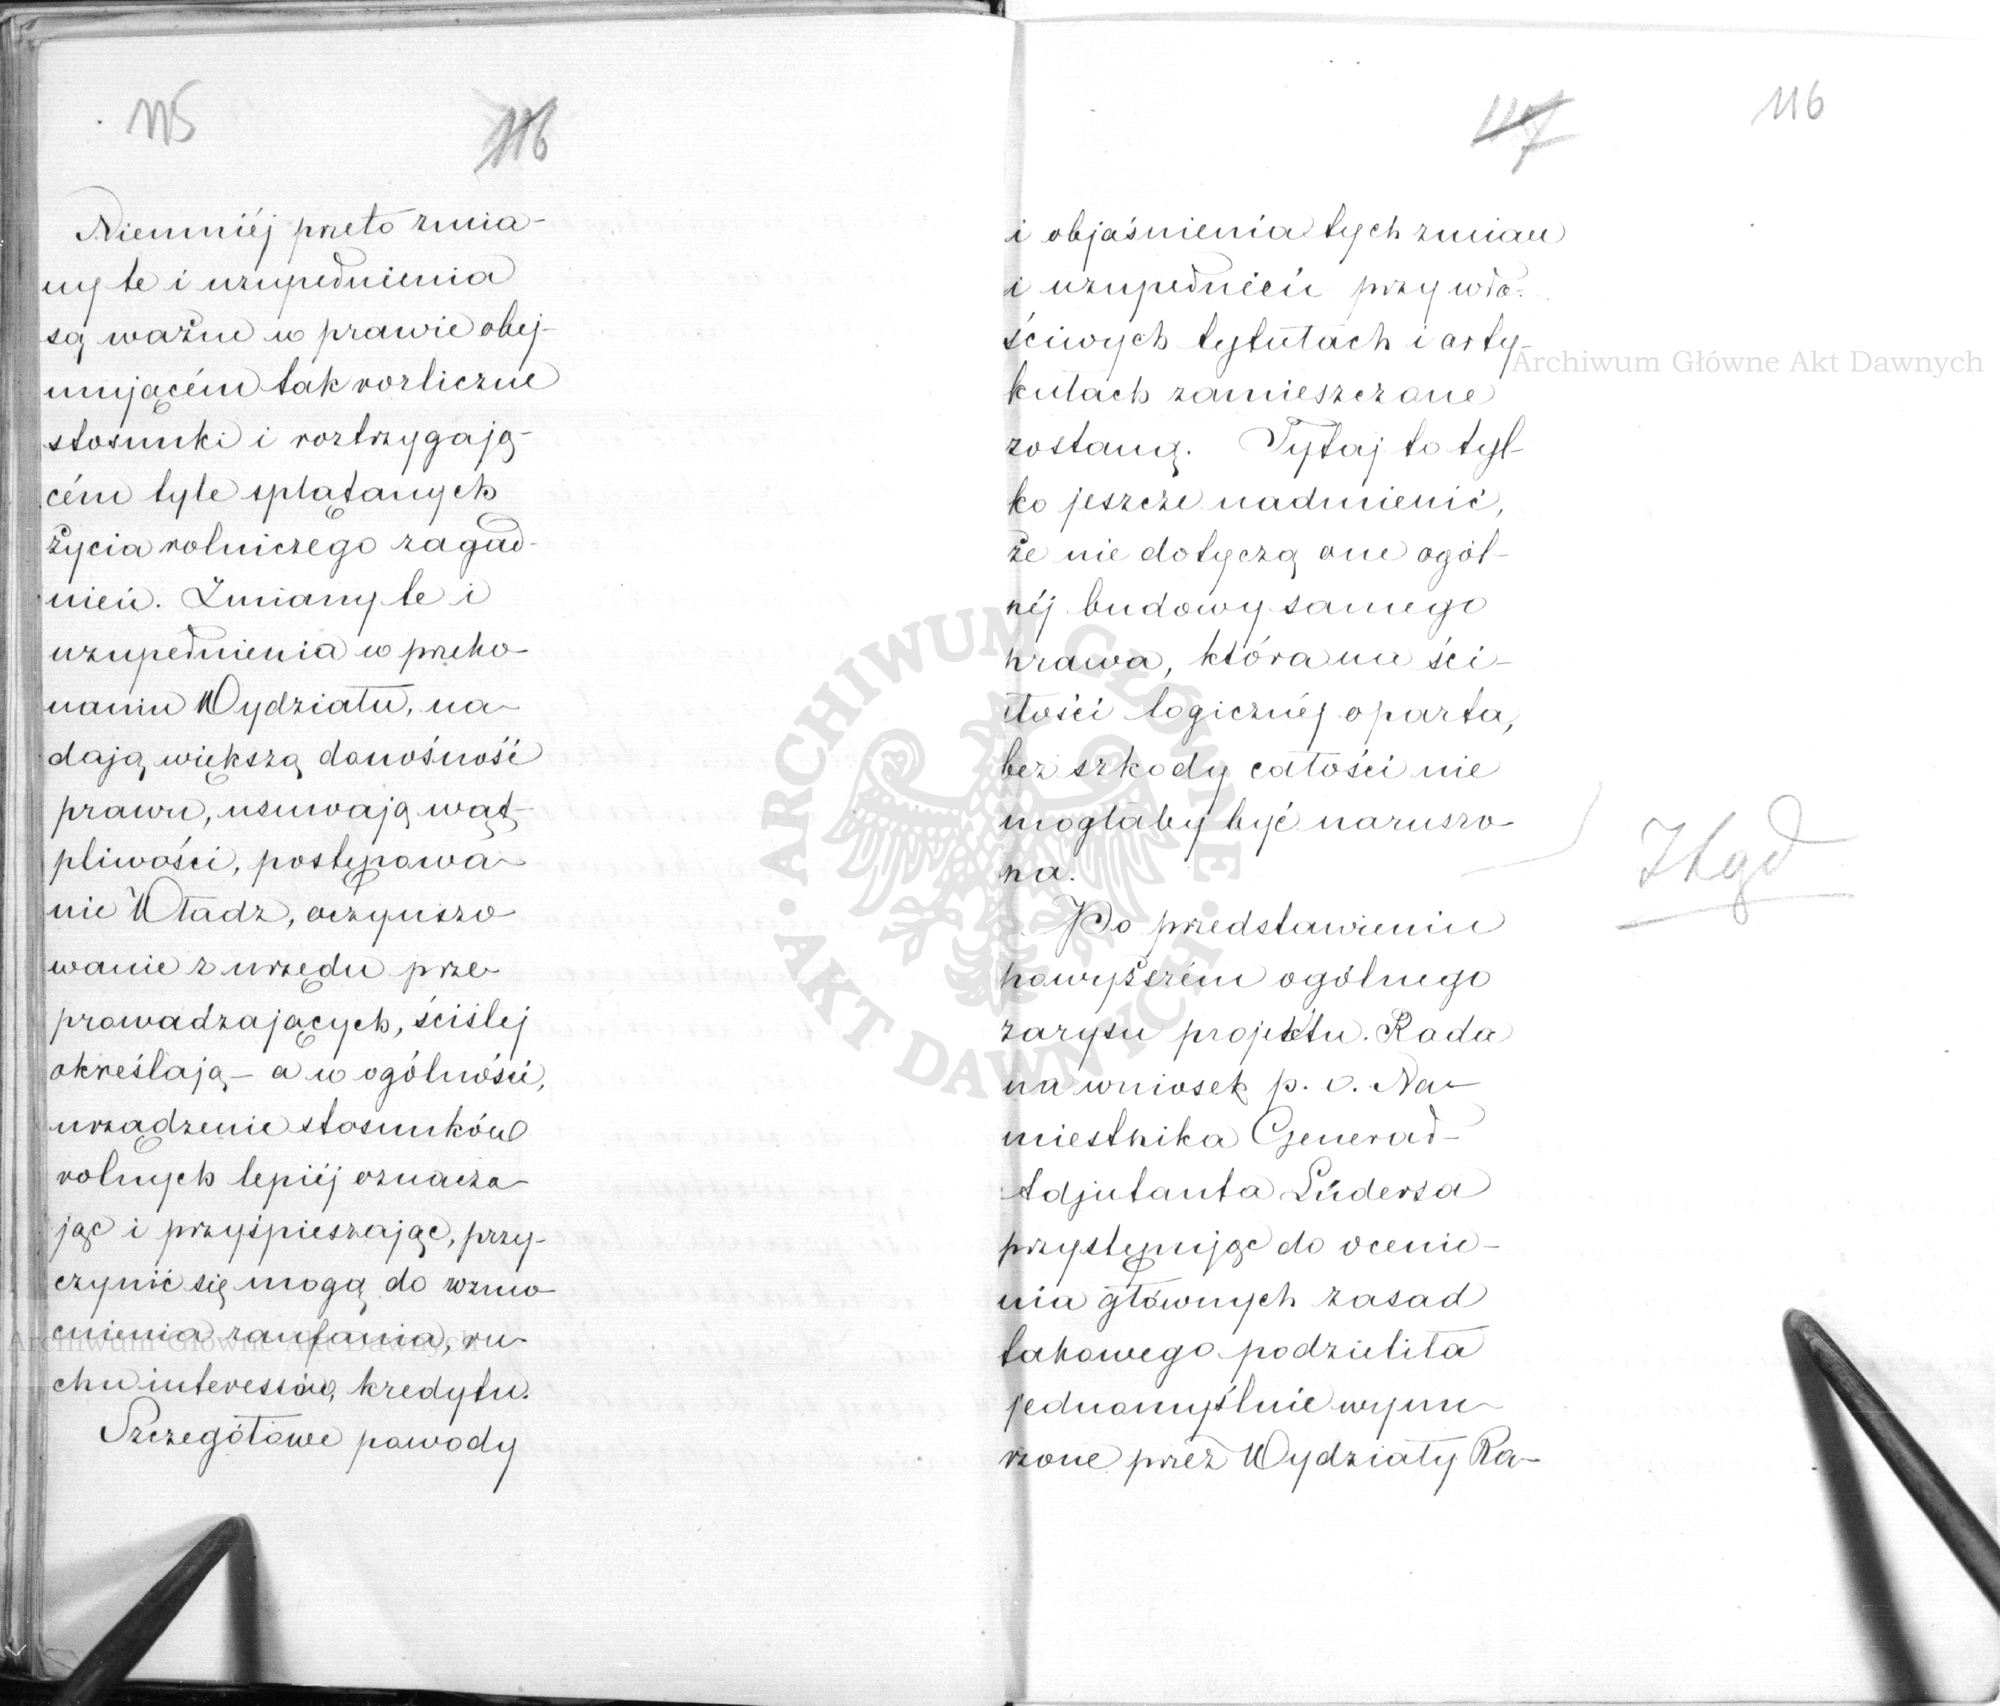 115
116
Niemniéj przeto zmia-
ny te i uzupełnienia
są ważne w prawie obej-
mującém tak rozliczne
stosunki i roztrzygają-
cém tyle splątanych
życia rolniczego zagad-
nień. Zmiany te i
uzupełnienia w przeko-
naniu Wydziału, na-
dają większą donośność
prawu, usuwają wąt-
pliwości, postępowa-
nie Władz, oczynszo
wanie z urzędu prze-
prowadzających, ściślej
określają - a w ogólności,
urządzenie stosunków
rolnych lepiéj oznacza-
jąc i przyśpieszając, przy-
czynić się mogą do wzmo-
cnienia zaufania, ru-
chu interessów, kredytu.
Szczegółowe powody
117
116
i objaśnienia tych zmian
i uzupełnień przy wła-
ściwych tytułach i arty-
kułach zamieszczone
zostaną. Tytaj to tyl-
ko jeszcze nadmienić,
że nie dotyczą one ogól-
néj budowy samego
prawa, która na ści-
słości logicznéj oparta,
bez szkody całości nie
mogłaby być naruszo-
na.
Po przedstawieniu
powyższém ogólnego
zarysu projektu. Rada
na wniosek p. o. Na-
miestnika Generał-
Adjutanta Lüdersa
przystępując do ocenie-
nia głównych zasad
takowego podzieliła
jednomyślnie wynu-
rzone przez Wydziały Ra-
Archiwum Główne Akt Dawnych
Archiwum Główne Akt Dawnych
ARCHIWUM GŁÓWNE
AKT DAWNYCH